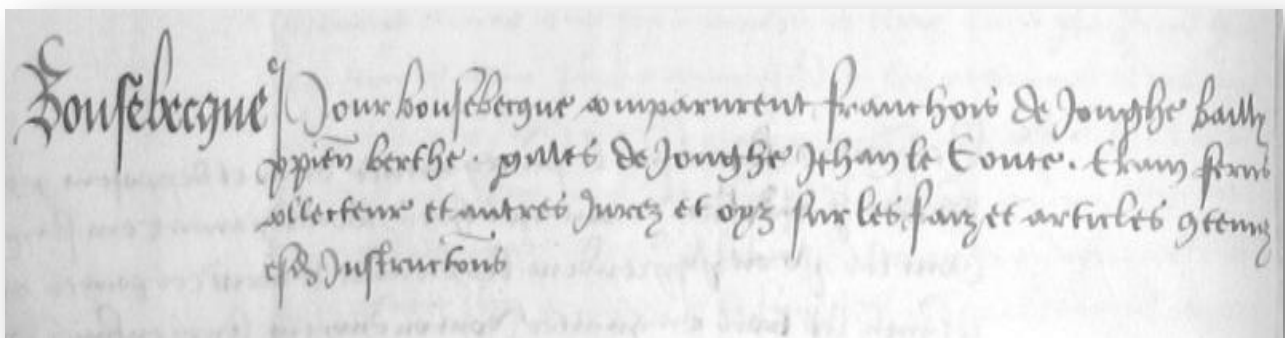 Bousebecque Pour bousebecque comparurent franchois de Jonghe bailly
xpien berthe . gilles de Jonghe Jehan le Conte . Eram
collecteur et autres Jurez et oyz sur les faiz et articles 9tenuz
esd Instructons